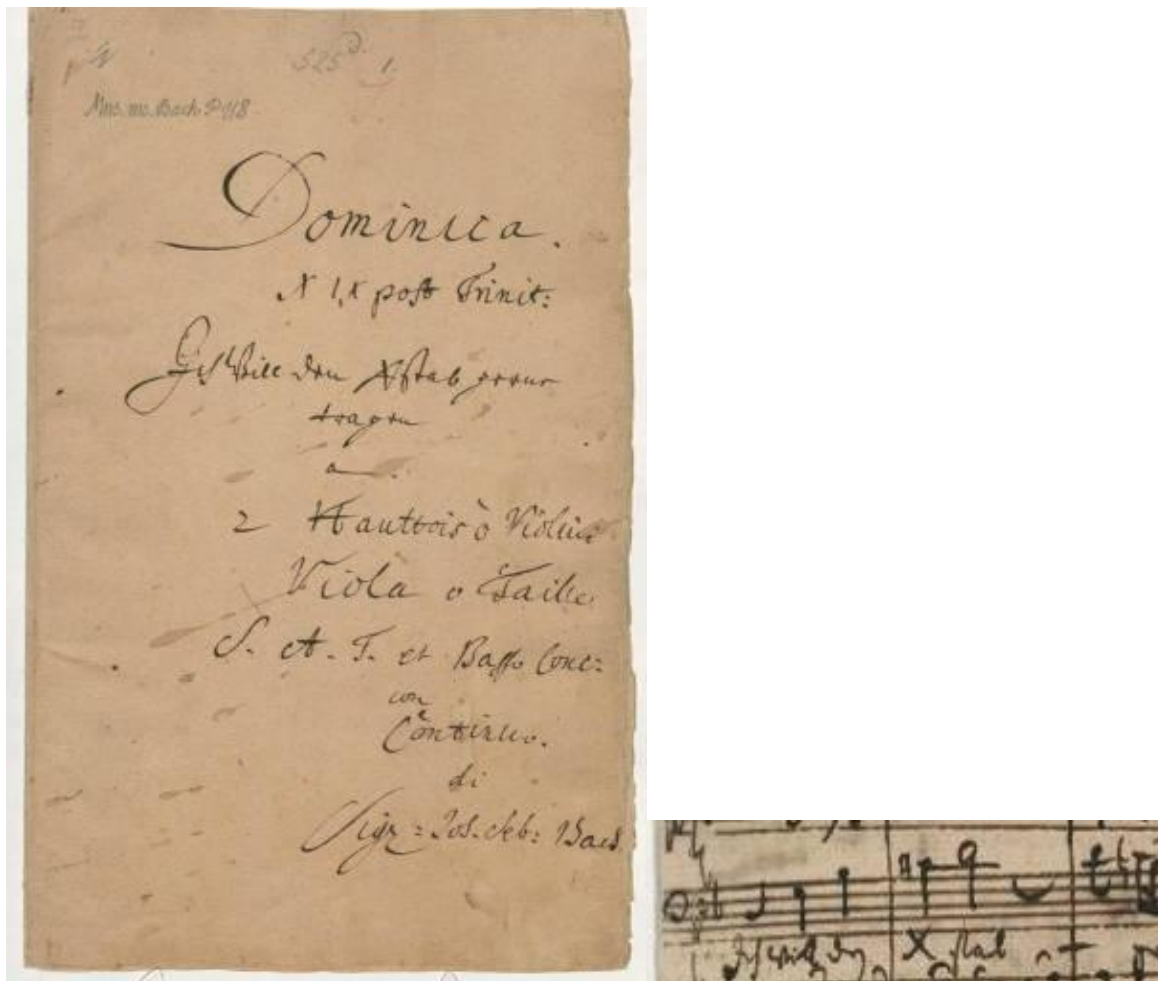 525 1.
Mus. ms. Bach P 118
Dominica.
XIX post Trinit:
Ich Will den Xstab gerne
tragen
a
2 Hautbois ò Violin
Viola o Taille
S. A. T. et Basso Conc:
con
Continuo.
di
Sigr: Joh. Seb: Bach
Ich will den X stab